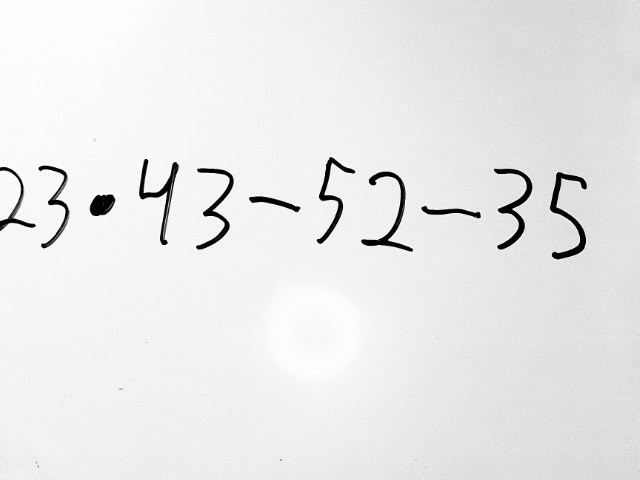 23•43-52-35